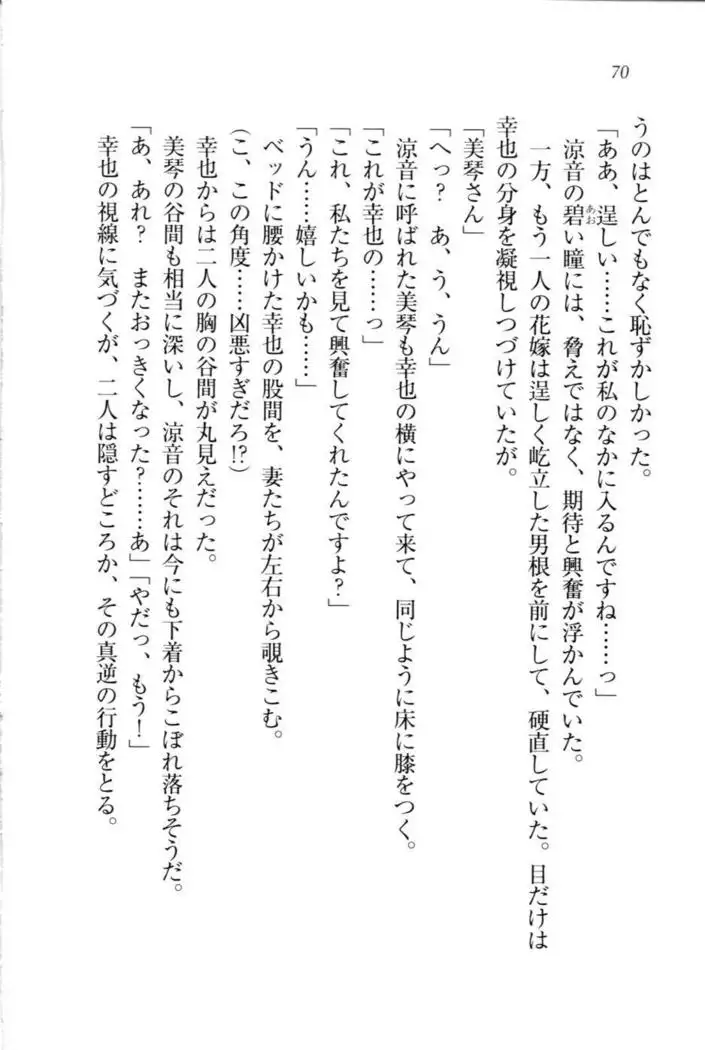 70
うのはとんでもなく恥ずかしかった。
「ああ、逞しい……これが私のなかに入るんですね……っ」
涼音の碧い瞳には、脅えではなく、期待と興奮が浮かんでいた。
あお
一方、もう一人の花嫁は逞しく屹立した男根を前にして、硬直していた。目だけは
幸也の分身を凝視しつづけていたが。
「美琴さん」
「へっ？　あ、う、うん」
涼音に呼ばれた美琴も幸也の横にやって来て、同じように床に膝をつく。
「これが幸也の……っ」
「これ、私たちを見て興奮してくれたんですよ？」
「うん……嬉しいかも……」
ベッドに腰かけた幸也の股間を、妻たちが左右から覗きこむ。
（こ、この角度……凶悪すぎだろ!?）
幸也からは二人の胸の谷間が丸見えだった。
美琴の谷間も相当に深いし、涼音のそれは今にも下着からこぼれ落ちそうだ。
「あ、あれ？　またおっきくなった？……あ」「やだっ、もう！」
幸也の視線に気づくが、二人は隠すどころか、その真逆の行動をとる。